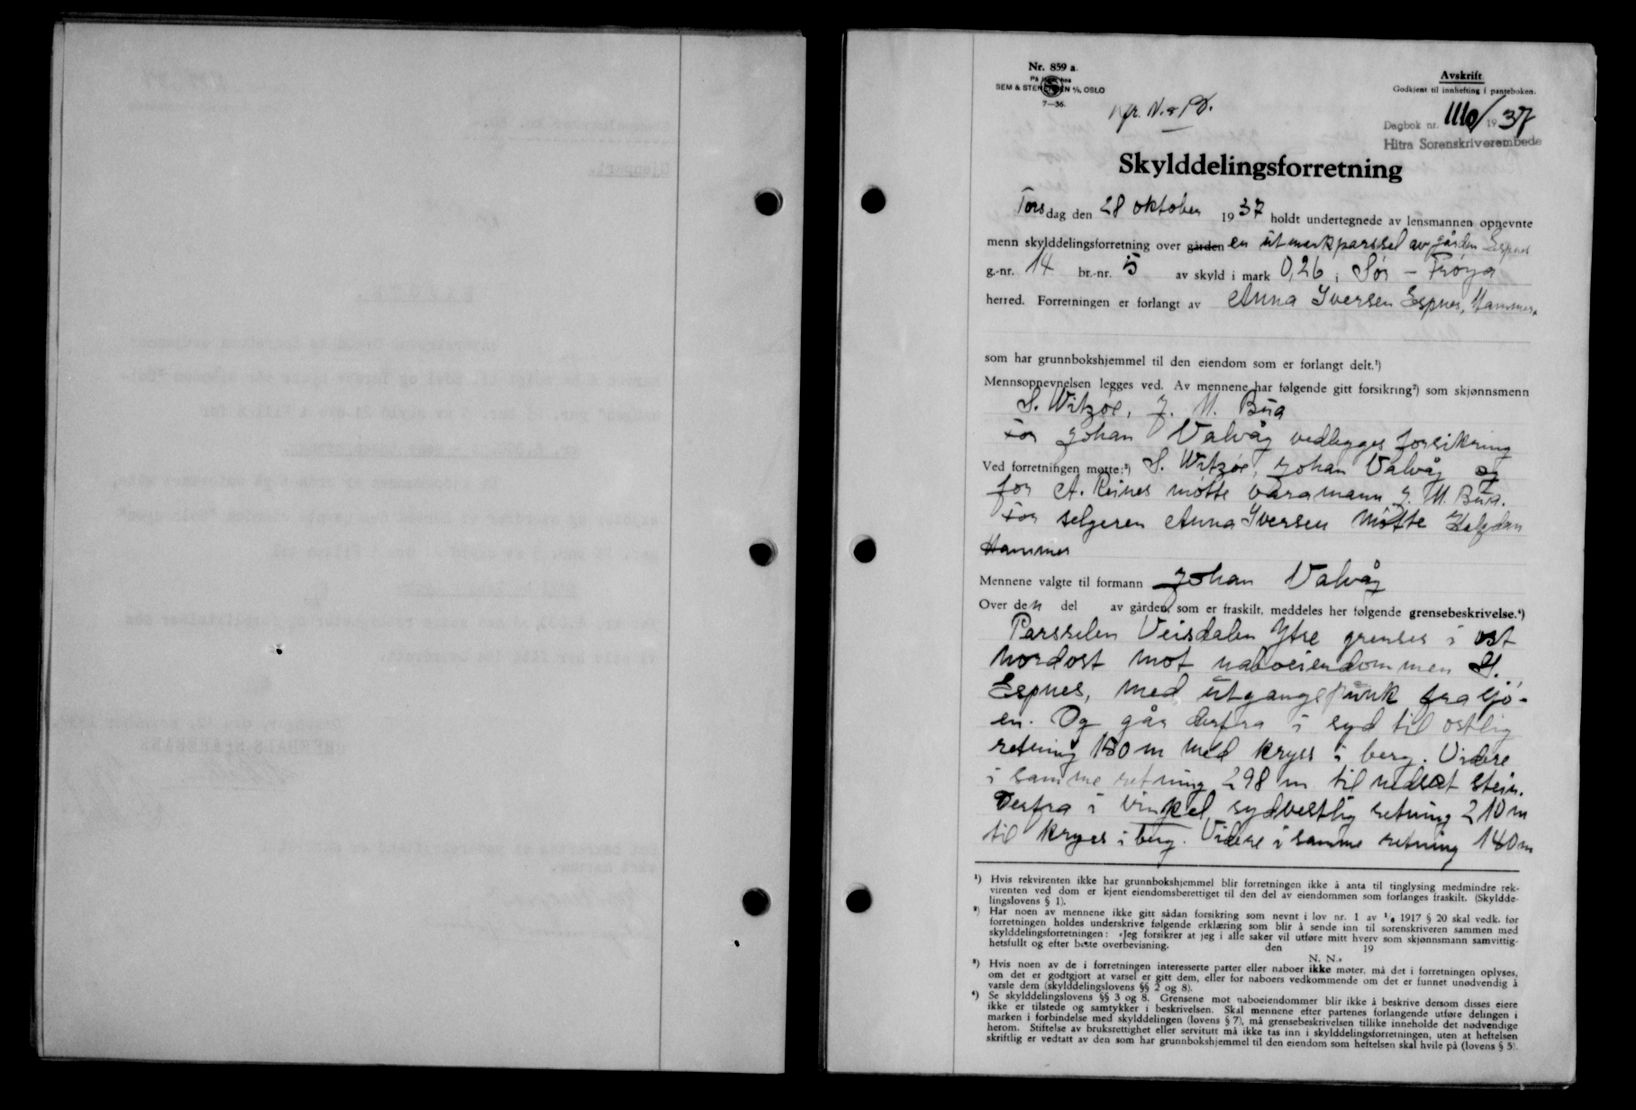 Nr. 859 a.
SEM & STENERSEN A/S, OSLO
7—36.
Avskrift
Godkjent til innhefting i panteboken.
Dagbok nr. 1110/1937
Hitra Sorenskriverembede
Skylddelingsforretning
Torsdag den 28 oktober 1937 holdt undertegnede av lensmannen opnevnte
menn skylddelingsforretning over gården en utmarkparssel av gården Espnes
g.-nr. 14 br.-nr. 5 av skyld i mark 0,26 i Sør - Frøya
herred. Forretningen er forlangt av Anna Iversen Espnes, Hammer.
som har grunnbokshjemmel til den eiendom som er forlangt delt.¹)
Mennsopnevnelsen legges ved. Av mennene har følgende gitt forsikring²) som skjønnsmenn
S. Witzøe, J. M. Bua
For Johan Valvåg vedlegges forsikring
Ved forretningen møtte:³) S. Witzøe, Johan Valvåg og
for A. Reines møtte varamann J. M. Bua.
For selgeren Anna Iversen møtte Halfdan
Hammer
Mennene valgte til formann Johan Valvåg
Over den del av gården som er fraskilt, meddeles her følgende grensebeskrivelse.⁴)
Parsselen Veisdalen Ytre grenses i ost
nordost mot naboeiendommen H.
Espnes, med utgangspunk fra sjø-
en. Og går derfra i syd til ostlig
retning 150 m med kryss i berg. Videre
i samme retning 298 m til nedsat stein.
Derfra i vinkel sydvestlig retning 210 m
til kryss i berg. Videre i samme retning 140 m
¹) Hvis rekvirenten ikke har grunnbokshjemmel blir forretningen ikke å anta til tinglysing medmindre rek-
virenten ved dom er kjent eiendomsberettiget til den del av eiendommen som forlanges fraskilt. (Skyldde-
lingslovens § 1).
²) Har noen av mennene ikke gitt sådan forsikring som nevnt i lov nr. 1 av 1917 § 20 skal vedk. før
forretningen holdes underskrive følgende erklæring som blir å sende inn til sorenskriveren sammen med
skylddelingsforretningen: «Jeg forsikrer at jeg i alle saker vil utføre mitt hverv som skjønnsmann samvittig-
hetsfullt og efter beste overbevisning. den 19
N. N.»
³) Hvis noen av de i forretningen interesserte parter eller naboer ikke møter, må det i forretningen oplyses,
om det er godtgjort at varsel er gitt dem, eller for naboers vedkommende om det er funnet unødvendig å
varsle dem (skylddelingslovens §§ 2 og 8).
⁴) Se skylddelingslovens §§ 3 og 8. Grensene mot naboeiendommer blir ikke å beskrive dersom disses eiere
ikke er tilstede og samtykker i beskrivelsen. Skal mennene efter partenes forlangende utføre delingen i
marken i forbindelse med skylddelingen (lovens § 7), må grensebeskrivelsen tillike inneholde det nødvendige
herom. Stiftelse av bruksrettighet eller servitutt må ikke tas inn i skylddelingsforretningen, uten at heftelsen
skriftlig er vedtatt av den som har grunnbokshjemmel til den eiendom som heftelsen skal hvile på (lovens § 5).